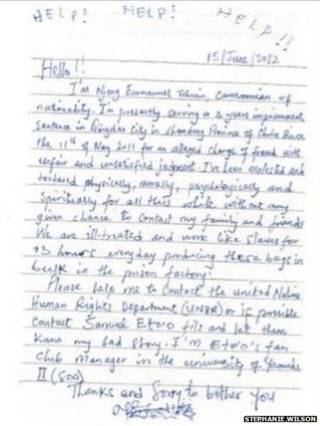 HELP! HELP! HELP!!
15/June/2012
Hello!!
I'm Njong Emmanuel Tohnain, Cameroonian of
nationality. I'm presently serving a 3 years imprisonment
Sentence in Qingdao City in Shandong Province of China Since
the 11th of May 2011 for an alleged charge of fraud with
unfair and unsatisfied judgment. I've been molested and
tortured physically, morally, psychologically and
Spiritually for all this while without any
given chance to contact my family and friends
We are ill-treated and work like slaves for
13 hours everyday producing these bags in
bulk in the prison factory.
Please help me to contact the united Nations
Human Rights Department (UNHR) or is possible
contact Samuel Eto'o fils and let them
Know my Sad Story. I'm Eto'o's fan
Club manager in the university of Yaounde
II (Soa)
Thanks and Sorry to bother You
STEPHANIE WILSON